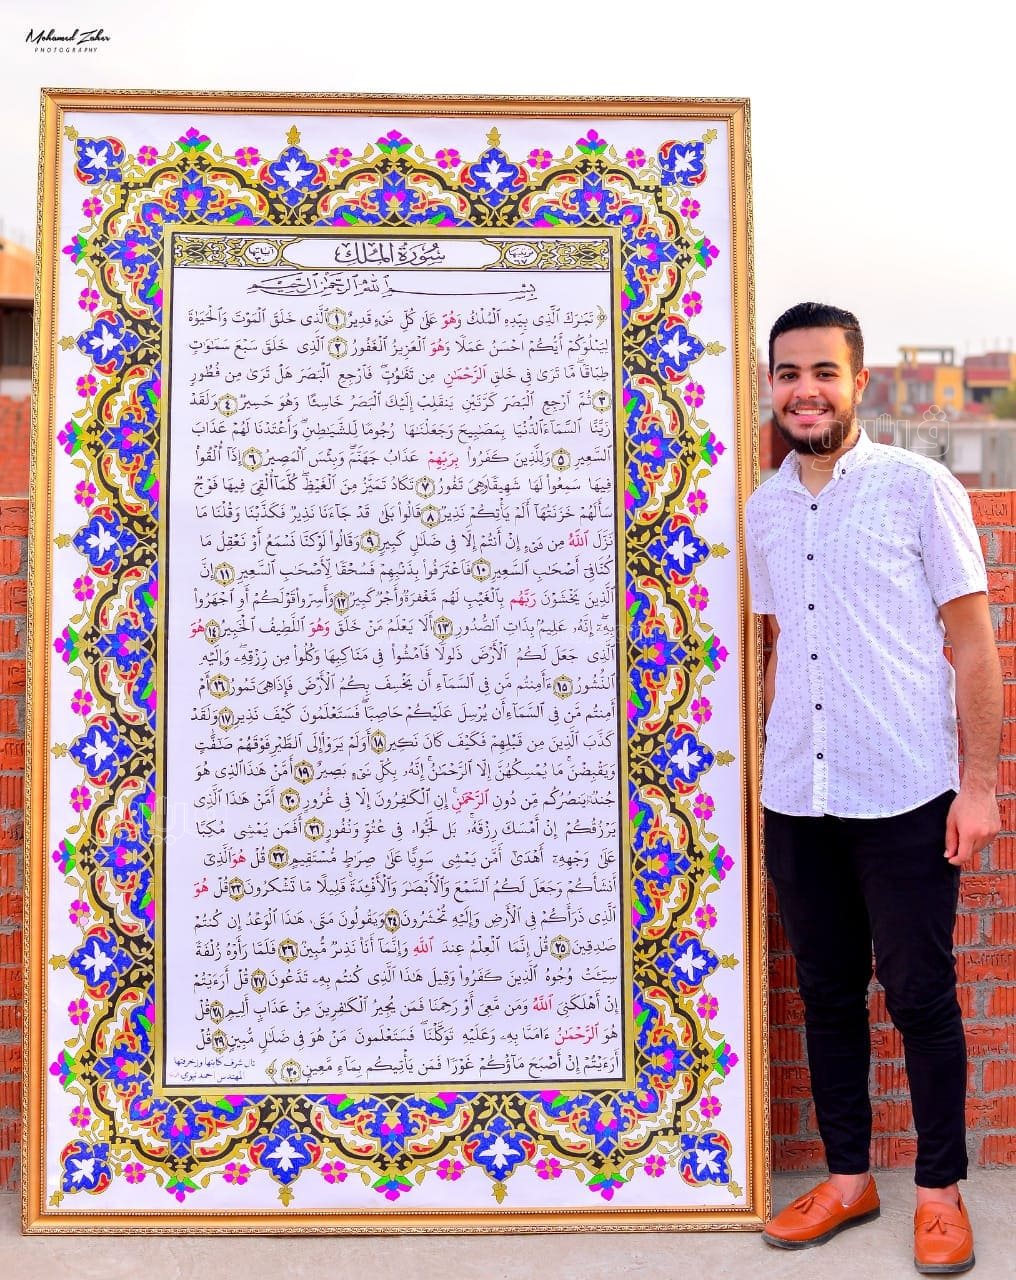 Mohamed Zaher
PHOTOGRAPHY
آياتها ٣٠
سُورَةُ المُلكِ
بِسْمِ ٱللَّهِ ٱلرَّحْمَٰنِ ٱلرَّحِيمِ
﴿ تَبَٰرَكَ ٱلَّذِى بِيَدِهِ ٱلْمُلْكُ وَهُوَ عَلَىٰ كُلِّ شَىْءٍ قَدِيرٌ ١ ٱلَّذِى خَلَقَ ٱلْمَوْتَ وَٱلْحَيَوٰةَ
لِيَبْلُوَكُمْ أَيُّكُمْ أَحْسَنُ عَمَلًا وَهُوَ ٱلْعَزِيزُ ٱلْغَفُورُ ٢ ٱلَّذِى خَلَقَ سَبْعَ سَمَٰوَٰتٍ
طِبَاقًا مَّا تَرَىٰ فِى خَلْقِ ٱلرَّحْمَٰنِ مِن تَفَٰوُتٍ فَٱرْجِعِ ٱلْبَصَرَ هَلْ تَرَىٰ مِن فُطُورٍ
٣ ثُمَّ ٱرْجِعِ ٱلْبَصَرَ كَرَّتَيْنِ يَنقَلِبْ إِلَيْكَ ٱلْبَصَرُ خَاسِئًا وَهُوَ حَسِيرٌ ٤ وَلَقَدْ
زَيَّنَّا ٱلسَّمَآءَ ٱلدُّنْيَا بِمَصَٰبِيحَ وَجَعَلْنَٰهَا رُجُومًا لِّلشَّيَٰطِينِ وَأَعْتَدْنَا لَهُمْ عَذَابَ
ٱلسَّعِيرِ ٥ وَلِلَّذِينَ كَفَرُوا۟ بِرَبِّهِمْ عَذَابُ جَهَنَّمَ وَبِئْسَ ٱلْمَصِيرُ ٦ إِذَآ أُلْقُوا۟
فِيهَا سَمِعُوا۟ لَهَا شَهِيقًا وَهِىَ تَفُورُ ٧ تَكَادُ تَمَيَّزُ مِنَ ٱلْغَيْظِ كُلَّمَآ أُلْقِىَ فِيهَا فَوْجٌ
سَأَلَهُمْ خَزَنَتُهَآ أَلَمْ يَأْتِكُمْ نَذِيرٌ ٨ قَالُوا۟ بَلَىٰ قَدْ جَآءَنَا نَذِيرٌ فَكَذَّبْنَا وَقُلْنَا مَا
نَزَّلَ ٱللَّهُ مِن شَىْءٍ إِنْ أَنتُمْ إِلَّا فِى ضَلَٰلٍ كَبِيرٍ ٩ وَقَالُوا۟ لَوْ كُنَّا نَسْمَعُ أَوْ نَعْقِلُ مَا
كُنَّا فِىٓ أَصْحَٰبِ ٱلسَّعِيرِ ١٠ فَٱعْتَرَفُوا۟ بِذَنۢبِهِمْ فَسُحْقًا لِّأَصْحَٰبِ ٱلسَّعِيرِ ١١ إِنَّ
ٱلَّذِينَ يَخْشَوْنَ رَبَّهُم بِٱلْغَيْبِ لَهُم مَّغْفِرَةٌ وَأَجْرٌ كَبِيرٌ ١٢ وَأَسِرُّوا۟ قَوْلَكُمْ أَوِ ٱجْهَرُوا۟
بِهِۦٓ إِنَّهُۥ عَلِيمٌۢ بِذَاتِ ٱلصُّدُورِ ١٣ أَلَا يَعْلَمُ مَنْ خَلَقَ وَهُوَ ٱللَّطِيفُ ٱلْخَبِيرُ ١٤ هُوَ
ٱلَّذِى جَعَلَ لَكُمُ ٱلْأَرْضَ ذَلُولًا فَٱمْشُوا۟ فِى مَنَاكِبِهَا وَكُلُوا۟ مِن رِّزْقِهِۦ وَإِلَيْهِ
ٱلنُّشُورُ ١٥ ءَأَمِنتُم مَّن فِى ٱلسَّمَآءِ أَن يَخْسِفَ بِكُمُ ٱلْأَرْضَ فَإِذَا هِىَ تَمُورُ ١٦ أَمْ
أَمِنتُم مَّن فِى ٱلسَّمَآءِ أَن يُرْسِلَ عَلَيْكُمْ حَاصِبًا فَسَتَعْلَمُونَ كَيْفَ نَذِيرِ ١٧ وَلَقَدْ
كَذَّبَ ٱلَّذِينَ مِن قَبْلِهِمْ فَكَيْفَ كَانَ نَكِيرِ ١٨ أَوَلَمْ يَرَوْا۟ إِلَى ٱلطَّيْرِ فَوْقَهُمْ صَٰٓفَّٰتٍ
وَيَقْبِضْنَ مَا يُمْسِكُهُنَّ إِلَّا ٱلرَّحْمَٰنُ إِنَّهُۥ بِكُلِّ شَىْءٍۭ بَصِيرٌ ١٩ أَمَّنْ هَٰذَا ٱلَّذِى هُوَ
جُندٌ لَّكُمْ يَنصُرُكُم مِّن دُونِ ٱلرَّحْمَٰنِ إِنِ ٱلْكَٰفِرُونَ إِلَّا فِى غُرُورٍ ٢٠ أَمَّنْ هَٰذَا ٱلَّذِى
يَرْزُقُكُمْ إِنْ أَمْسَكَ رِزْقَهُۥ بَل لَّجُّوا۟ فِى عُتُوٍّ وَنُفُورٍ ٢١ أَفَمَن يَمْشِى مُكِبًّا
عَلَىٰ وَجْهِهِۦٓ أَهْدَىٰٓ أَمَّن يَمْشِى سَوِيًّا عَلَىٰ صِرَٰطٍ مُّسْتَقِيمٍ ٢٢ قُلْ هُوَ ٱلَّذِىٓ
أَنشَأَكُمْ وَجَعَلَ لَكُمُ ٱلسَّمْعَ وَٱلْأَبْصَٰرَ وَٱلْأَفْـِٔدَةَ قَلِيلًا مَّا تَشْكُرُونَ ٢٣ قُلْ هُوَ
ٱلَّذِى ذَرَأَكُمْ فِى ٱلْأَرْضِ وَإِلَيْهِ تُحْشَرُونَ ٢٤ وَيَقُولُونَ مَتَىٰ هَٰذَا ٱلْوَعْدُ إِن كُنتُمْ
صَٰدِقِينَ ٢٥ قُلْ إِنَّمَا ٱلْعِلْمُ عِندَ ٱللَّهِ وَإِنَّمَآ أَنَا۠ نَذِيرٌ مُّبِينٌ ٢٦ فَلَمَّا رَأَوْهُ زُلْفَةً
سِيٓـَٔتْ وُجُوهُ ٱلَّذِينَ كَفَرُوا۟ وَقِيلَ هَٰذَا ٱلَّذِى كُنتُم بِهِۦ تَدَّعُونَ ٢٧ قُلْ أَرَءَيْتُمْ
إِنْ أَهْلَكَنِىَ ٱللَّهُ وَمَن مَّعِىَ أَوْ رَحِمَنَا فَمَن يُجِيرُ ٱلْكَٰفِرِينَ مِنْ عَذَابٍ أَلِيمٍ ٢٨ قُلْ
هُوَ ٱلرَّحْمَٰنُ ءَامَنَّا بِهِۦ وَعَلَيْهِ تَوَكَّلْنَا فَسَتَعْلَمُونَ مَنْ هُوَ فِى ضَلَٰلٍ مُّبِينٍ ٢٩ قُلْ
أَرَءَيْتُمْ إِنْ أَصْبَحَ مَآؤُكُمْ غَوْرًا فَمَن يَأْتِيكُم بِمَآءٍ مَّعِينٍۭ ٣٠ ﴾
نال شرف كتابتها وزخرفتها
المهندس أحمد نبوي